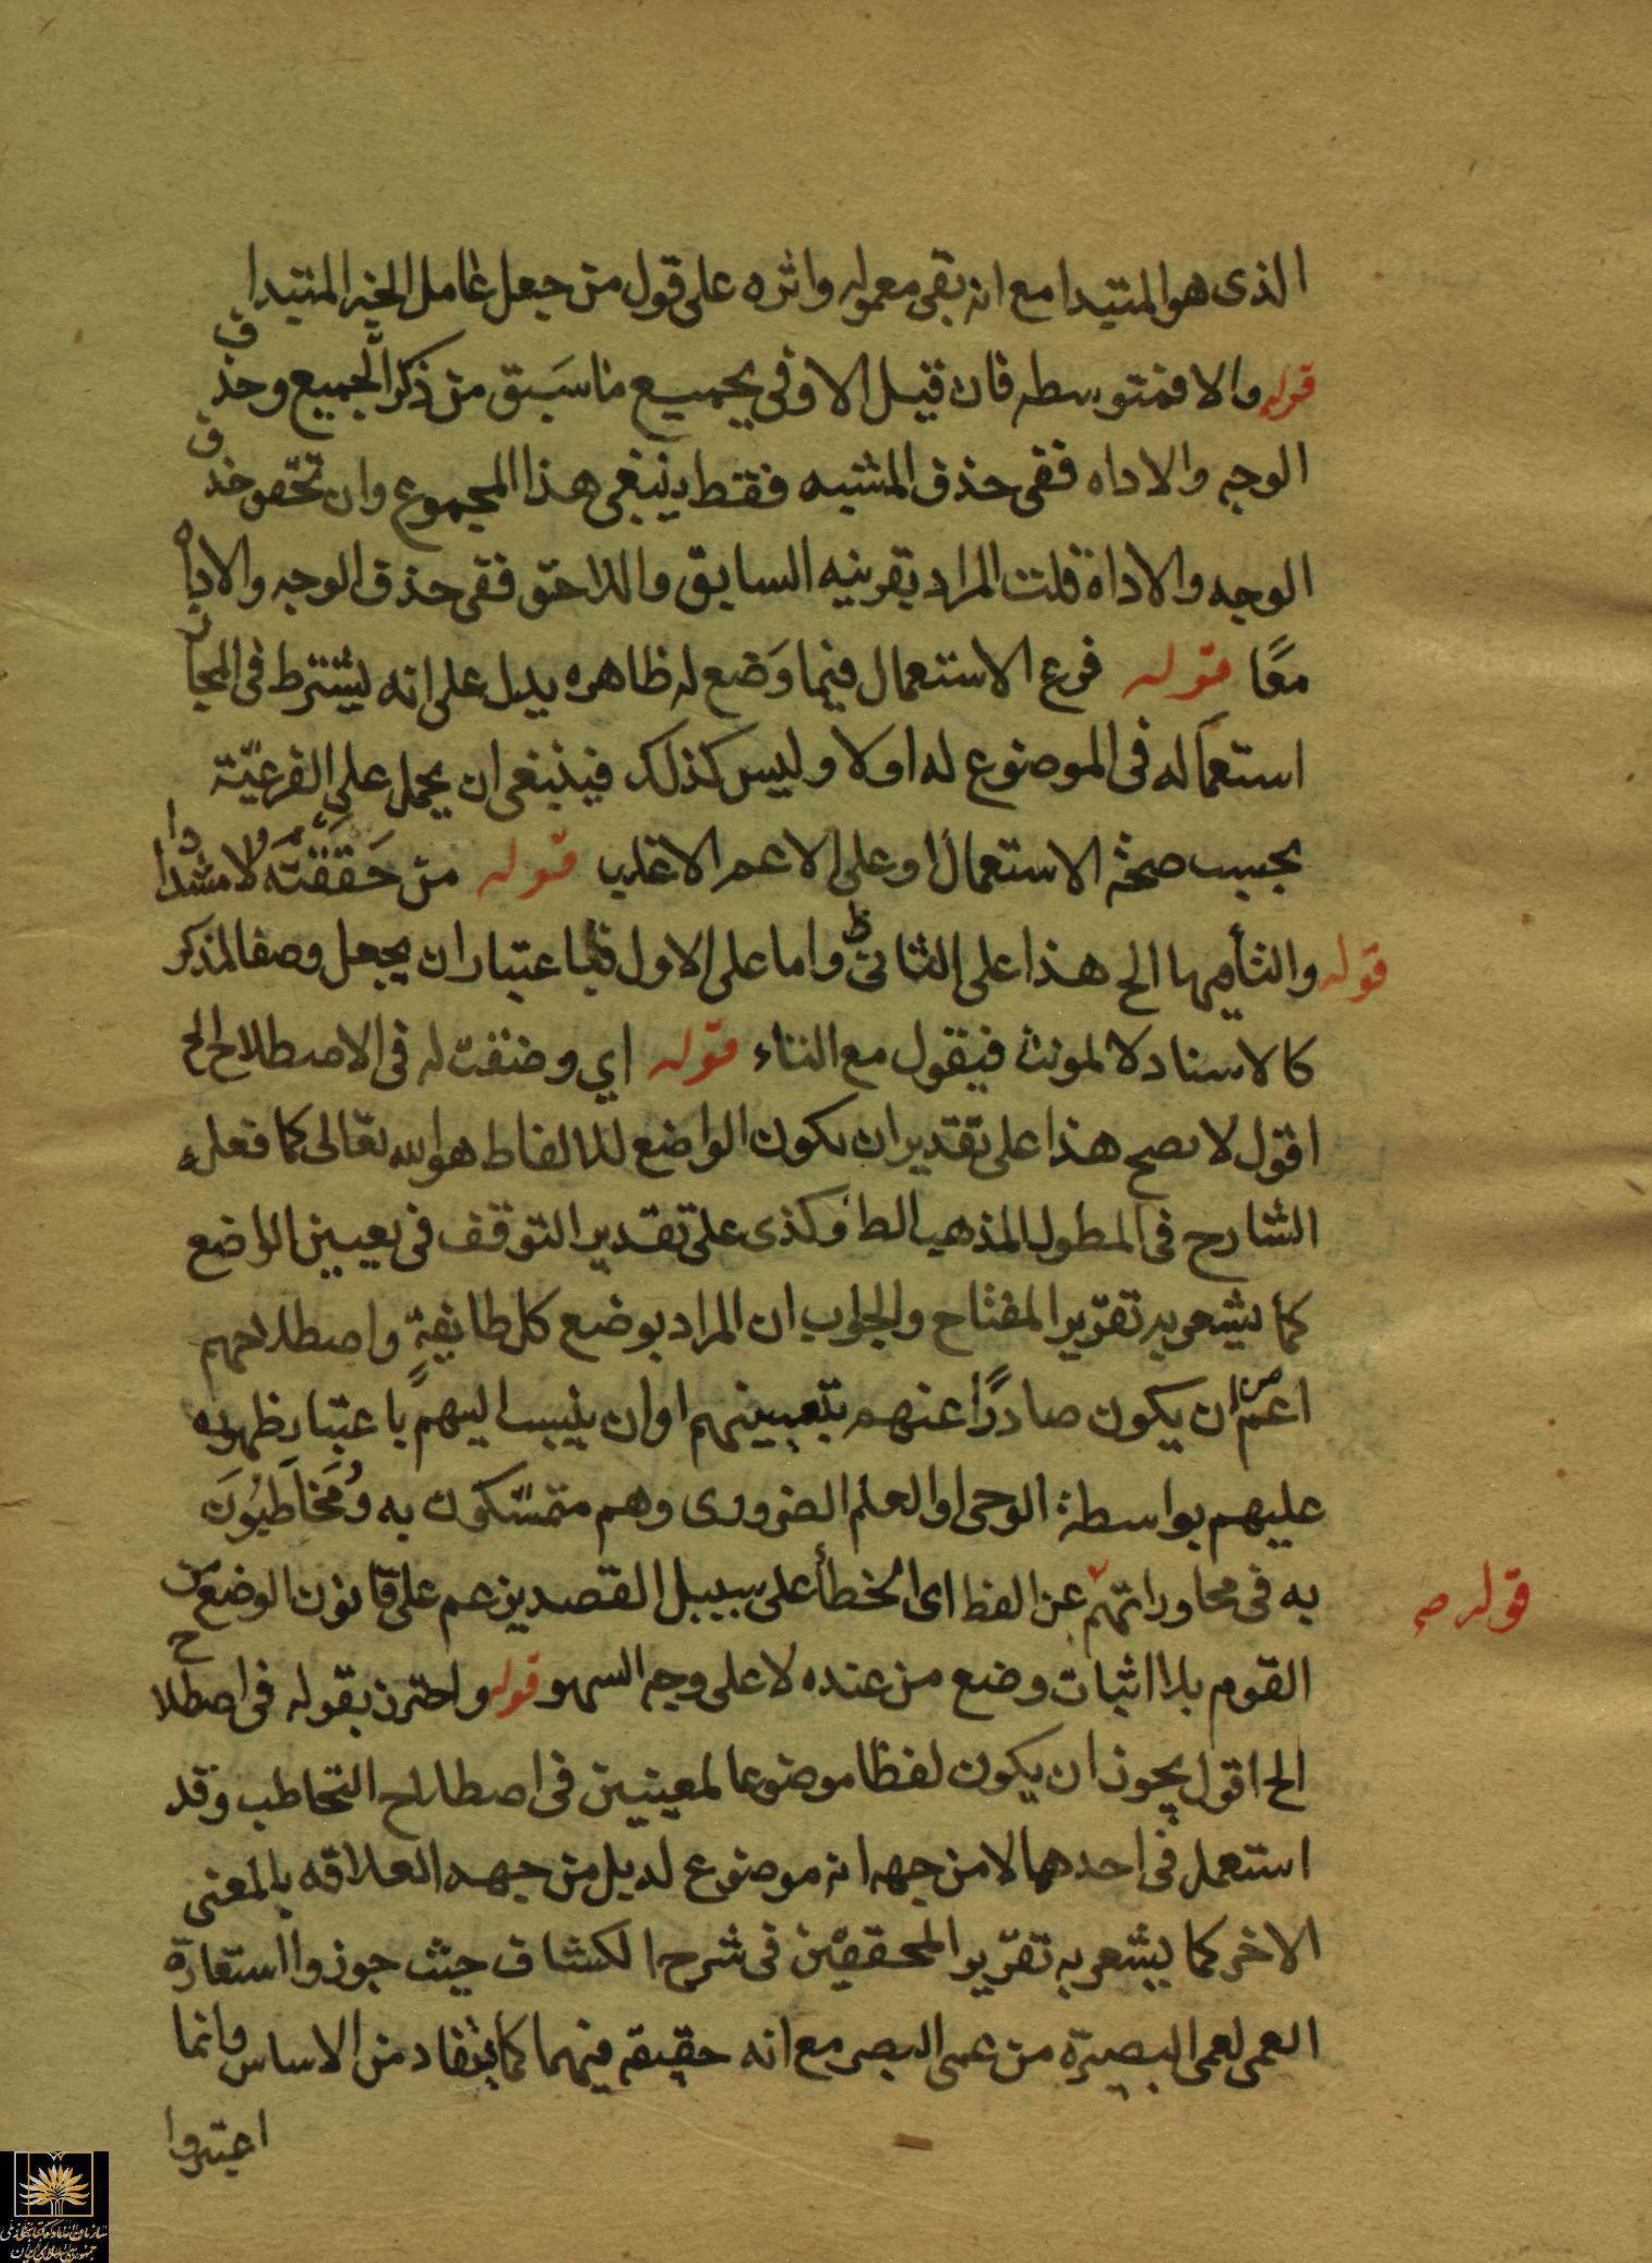 الذى هو المتبدا مع انه بقى معموله واثره على قول من جعل عامل الخبر المتبدا
قوله والا فمتوسطه فان قيل الاوفى بجميع ما سَبَق من ذكر الجميع وحذف
الوجه والاداه ففى حذف المشبه فقط ينبغى هذا المجموع وان تختص حذف
الوجه والاداة قلت المراد بقرينه السابق واللاحق ففى حذف الوجه والاداه
معًا قوله فرع الاستعمال فيما وَضع له ظاهره يدل على انه يشترط فى المجاز
استعماله فى الموضوع له اولا وليس كذلك فينبغى ان يحمل على الفرعيّة
بحسب صحة الاستعمال او على الاعم الاغلب قوله من حَقَقَتَه لا مشدد
قوله والتأ فيها الح هذا على الثانى واما على الاول فباعتبار ان يجعل وصفا لمذكر
كالاسناد لا لمونث فيقول مع التاء قوله اي وضعت له فى الاصطلاح الح
اقول لا يصح هذا على تقدير ان يكون الواضع للالفاط هو الله تعالى كما فعله
الشارح فى المطول المذهب الط وكذى على تقدير التوقف فى تعيين الواضع
كما يشعر به تقرير المفتاح والجواب ان المراد بوضع كل طايفة واصطلاحهم
اعم من ان يكون صادرًا عنهم بتعيينهم او ان ينسب اليهم باعتبار ظهوره
عليهم بواسطة الوحى او العلم الضرورى وهم متمسّكون به وُمخاَطبُوَن
به فى محاوراتهم عن الفظ اى الخطأ على سبيل القصد بزعم على قانون الوضع من
قوله صح
القوم بلا اثبات وضع من عنده لا على وجه السهو قوله واحترز بقوله فى اصطلاح
الح اقول يجوز ان يكون لفظا موضوعا لمعينين فى اصطلاح التخاطب وقد
استعمل فى احدهما لا من جهه انه موضوع له بل من جهه العلاقه بالمعنى
الاخر كما يشعر به تقرير المحققين فى شرح الكشاف حيث جوزوا استعارة
العمى لعمى البصيرة من عمى البصر مع انه حقيقة فيهما كما يتفاد من الاساس وانما
اعتبروا